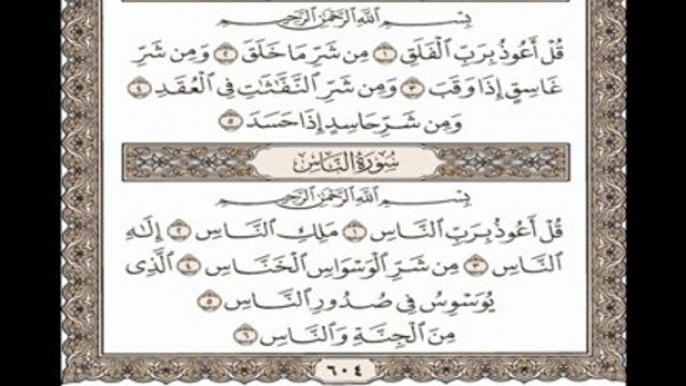 بِسْمِ اللَّهِ الرَّحْمَٰنِ الرَّحِيمِ
قُلْ أَعُوذُ بِرَبِّ الْفَلَقِ ١ مِن شَرِّ مَا خَلَقَ ٢ وَمِن شَرِّ
غَاسِقٍ إِذَا وَقَبَ ٣ وَمِن شَرِّ النَّفَّاثَاتِ فِي الْعُقَدِ ٤
وَمِن شَرِّ حَاسِدٍ إِذَا حَسَدَ ٥
سُورَةُ النَّاسِ
بِسْمِ اللَّهِ الرَّحْمَٰنِ الرَّحِيمِ
قُلْ أَعُوذُ بِرَبِّ النَّاسِ ١ مَلِكِ النَّاسِ ٢ إِلَٰهِ
النَّاسِ ٣ مِن شَرِّ الْوَسْوَاسِ الْخَنَّاسِ ٤ الَّذِي
يُوَسْوِسُ فِي صُدُورِ النَّاسِ ٥
مِنَ الْجِنَّةِ وَالنَّاسِ ٦
٦٠٤